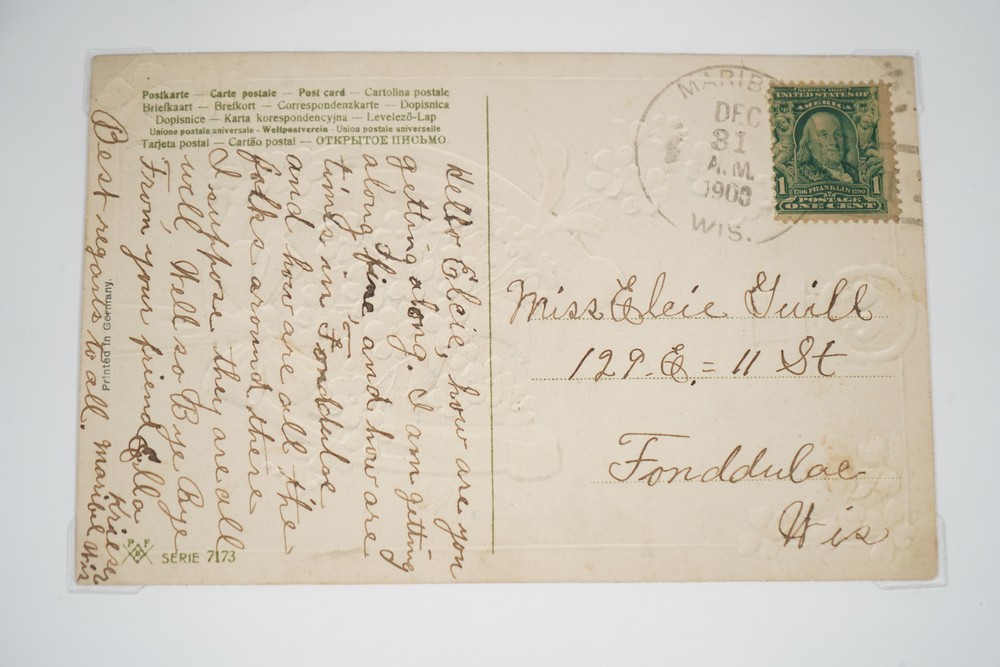 Postkarte — Carte postale — Post card — Cartolina postale
Briefkaart — Brefkort — Correspondenzkarte — Dopisnica
Dopisnice — Karta korespondencyjna — Levelező-Lap
Unione postale universale - Weltpostverein - Union postale universelle
Tarjeta postal — Cartão postal — ОТКРЫТОЕ ПИСЬМО
Hello Elcie, how are you
getting along. I am getting
along fine and how are
tims in Fonddulae
and how are all the
folks arround there
I suppose they are all
well, Well so Bye Bye
From your friend Ella
Best regards to all. Maribel Wis
Printed in Germany.
P F
SERIE 7173
MARIB
DEC
31
A.M.
WIS.
SERIES 1902
UNITED STATES OF
AMERICA
1706 FRANKLIN 1790
1 POSTAGE 1
ONE CENT
Miss Elcie Guill
129. E. = 11 St
Fonddulae
Wis